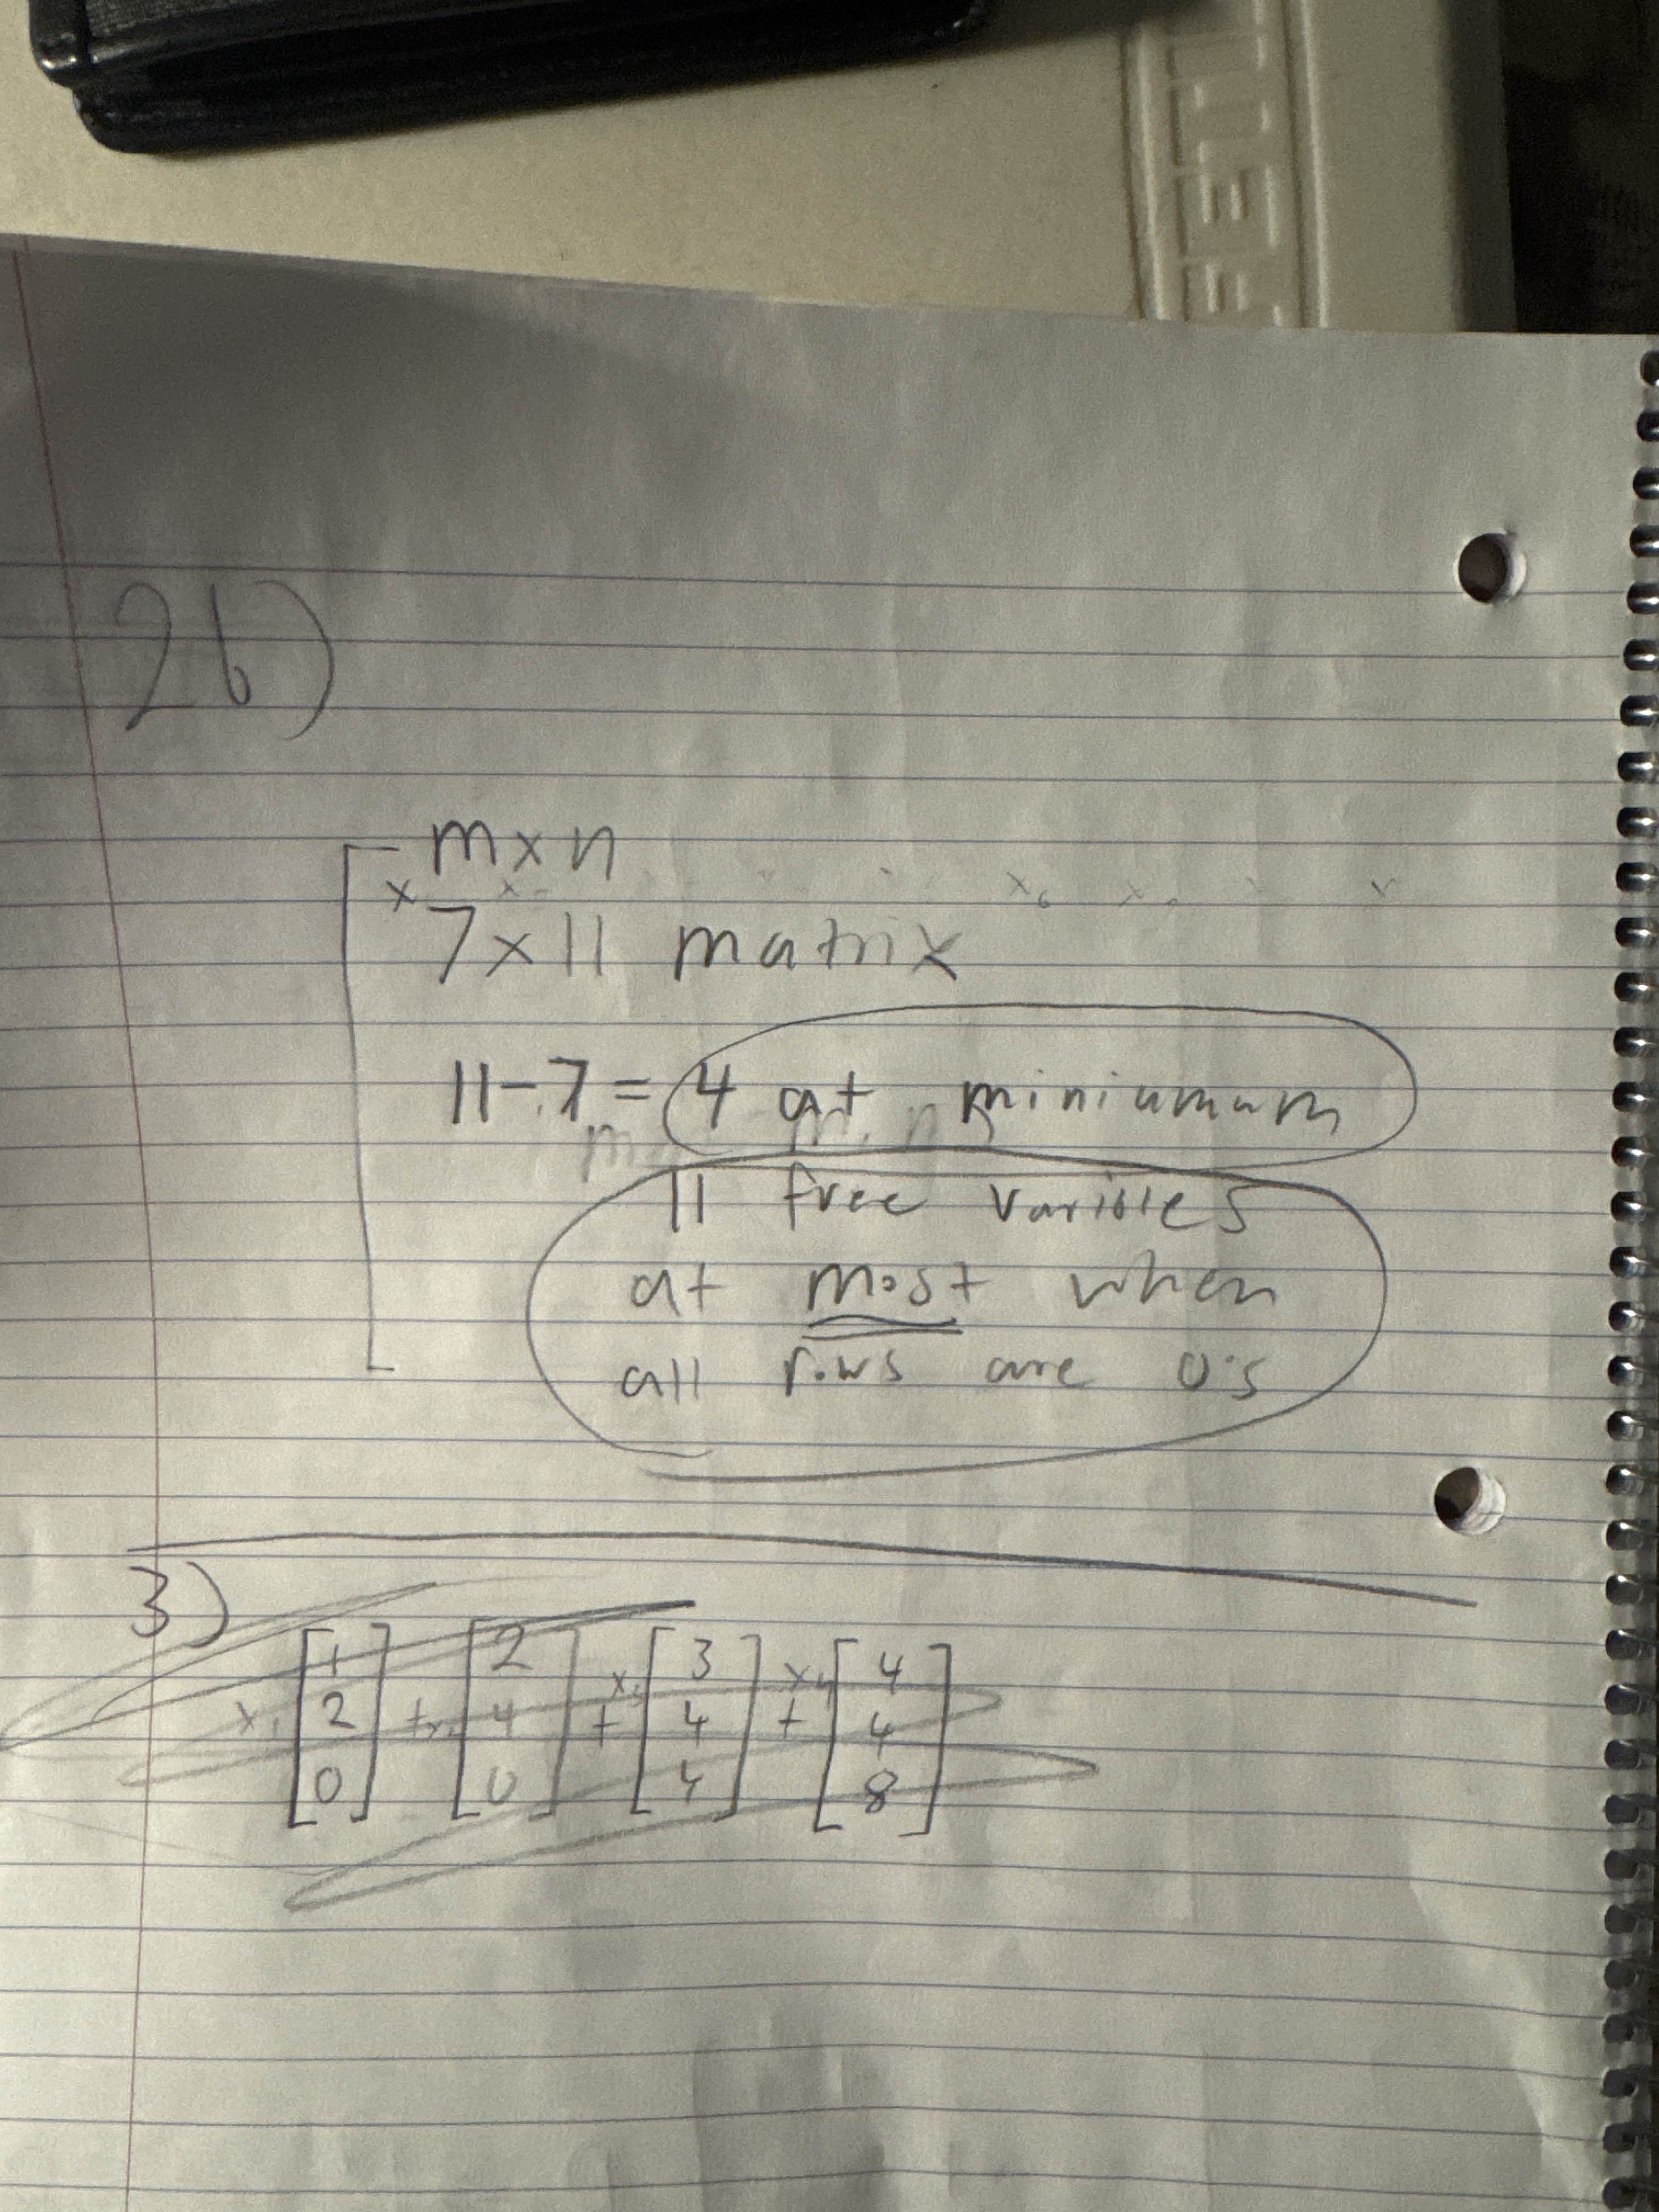 2b)
m x n
7 x 11 matrix
11 - 7 = 4 at miniumum
11 free varibles
at most when
all rows are 0's
3)
x₁ [1 2 0] + x₂ [2 4 0] + x₃ [3 4 4] + x₄ [4 4 8]